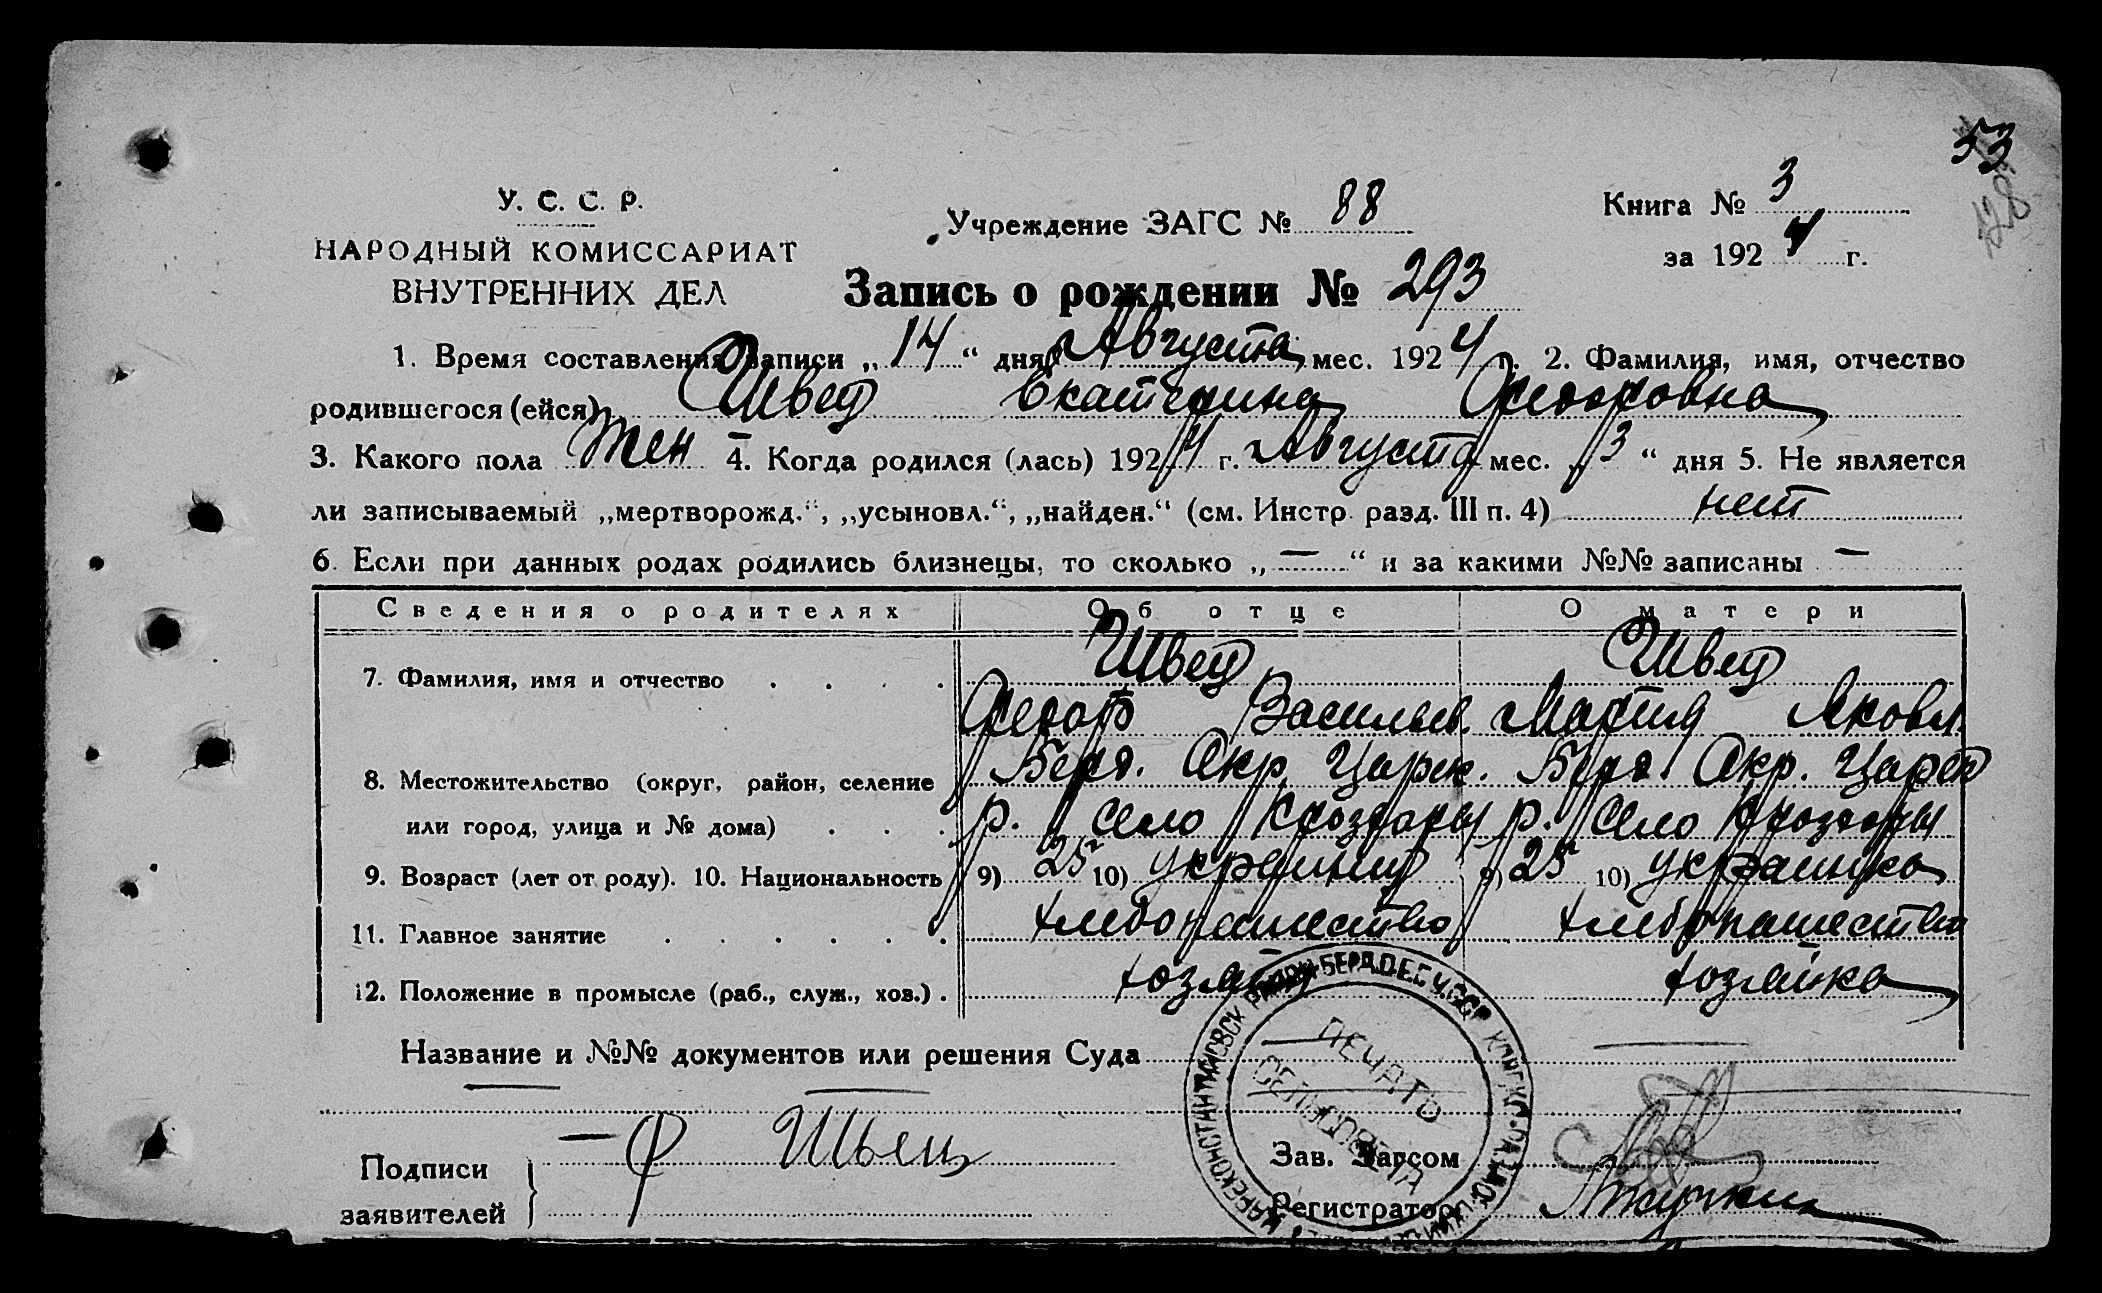 53
У. С. С. Р.
НАРОДНЫЙ КОМИССАРИАТ
ВНУТРЕННИХ ДЕЛ
Учреждение ЗАГС № 88
Книга № 3
за 1924 г.
Запись о рождении № 293
1. Время составления записи „14“ дня Августа мес. 1924 г. 2. Фамилия, имя, отчество
родившегося (ейся) Швец Екатерина Федоровна
3. Какого пола Жен 4. Когда родился (лась) 1924 г. Августа мес. „3“ дня 5. Не является
ли записываемый „мертворожд.“, „усыновл.“, „найден.“ (см. Инстр. разд. III п. 4) нет
6. Если при данных родах родились близнецы, то сколько „—“ и за какими №№ записаны —
Сведения о родителях Об отце О матери
Швец Швец
7. Фамилия, имя и отчество
Федор Васильев. Мария Яковл.
8. Местожительство (округ, район, селение Берд. Окр. Царек. Берд. Окр. Царек
или город, улица и № дома) р. село Гроздовы р. село
9. Возраст (лет от роду). 10. Национальность 9) 25 10) украинец 9) 25 10) украинка
11. Главное занятие хлебопашество хлебопашество
12. Положение в промысле (раб., служ., хоз.) хозяин хозяйка
Название и №№ документов или решения Суда
ПЕЧАТЬ
СЕЛЬСОВЕТА
Подписи
заявителей
Ф Швец
Зав. Загсом
Регистратор